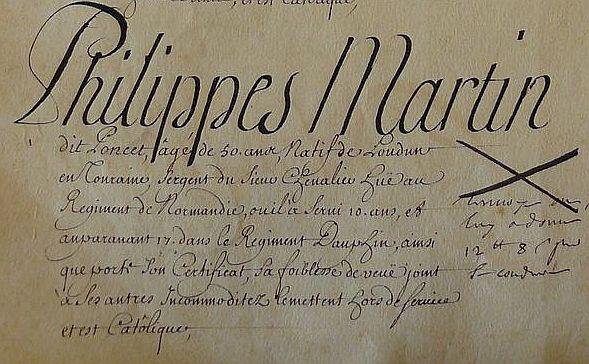 et est Catolique,
Philippes Martin
dit Poncet, agé de 50. ans, Natif de Loudun
en Touraine, Sergent du Sieur Chevalier Huë au
Regiment de Normandie, ou il a servi 10. ans, et
auparavant 17. dans le Regiment Dauphin, ainsi
que porte son Certificat, sa foiblesse de veüe joint
à ses autres Incommoditez le mettent hors de service
et est Catolique,
luy a donné
12 tt 8 s